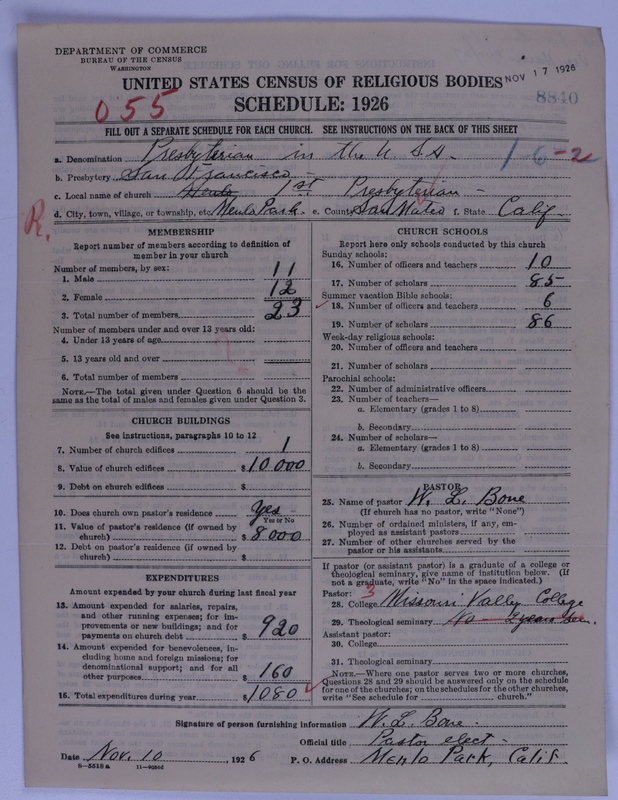 DEPARTMENT OF COMMERCE
BUREAU OF THE CENSUS
WASHINGTON
UNITED STATES CENSUS OF RELIGIOUS BODIES
NOV 17 1926
8840
SCHEDULE: 1926
055
FILL OUT A SEPARATE SCHEDULE FOR EACH CHURCH. SEE INSTRUCTIONS ON THE BACK OF THIS SHEET
a. Denomination Presbyterian in the U.S.A. 1-6-2
b. Presbytery San Francisco
c. Local name of church Menlo 1st Presbyterian
d. City, town, village, or township, etc. Menlo Park. e. County San Mateo f. State Calif.
R.
MEMBERSHIP
Report number of members according to definition of
member in your church
Number of members, by sex:
1. Male 11
2. Female 12
3. Total number of members 23
Number of members under and over 13 years old:
4. Under 13 years of age
5. 13 years old and over
6. Total number of members
NOTE.—The total given under Question 6 should be the
same as the total of males and females given under Question 3.
CHURCH BUILDINGS
See instructions, paragraphs 10 to 12
7. Number of church edifices 1
8. Value of church edifices $10 000
9. Debt on church edifices $
10. Does church own pastor's residence Yes
Yes or No
11. Value of pastor's residence (if owned by
church) $8 000
12. Debt on pastor's residence (if owned by
church) $
EXPENDITURES
Amount expended by your church during last fiscal year
13. Amount expended for salaries, repairs,
and other running expenses; for im-
provements or new buildings; and for
payments on church debt $920
14. Amount expended for benevolences, in-
cluding home and foreign missions; for
denominational support; and for all
other purposes $160
15. Total expenditures during year $1080
CHURCH SCHOOLS
Report here only schools conducted by this church
Sunday schools:
16. Number of officers and teachers 10
17. Number of scholars 85
Summer vacation Bible schools:
18. Number of officers and teachers 6
19. Number of scholars 86
Week-day religious schools:
20. Number of officers and teachers
21. Number of scholars
Parochial schools:
22. Number of administrative officers
23. Number of teachers—
a. Elementary (grades 1 to 8)
b. Secondary
24. Number of scholars—
a. Elementary (grades 1 to 8)
b. Secondary
PASTOR
25. Name of pastor W. L. Bone
(If church has no pastor, write "None")
26. Number of ordained ministers, if any, em-
ployed as assistant pastors
27. Number of other churches served by the
pastor or his assistants
If pastor (or assistant pastor) is a graduate of a college or
theological seminary, give name of institution below. (If
not a graduate, write "No" in the space indicated.)
Pastor: 3
28. College Missouri Valley College
29. Theological seminary No - 2 years
Assistant pastor:
30. College
31. Theological seminary
NOTE.—Where one pastor serves two or more churches,
Questions 28 and 29 should be answered only on the schedule
for one of the churches; on the schedules for the other churches,
write "See schedule for church."
Signature of person furnishing information W. L. Bone.
Official title Pastor elect.
Date Nov. 10, 1926 P. O. Address Menlo Park, Calif.
8—5518a 11—8050d